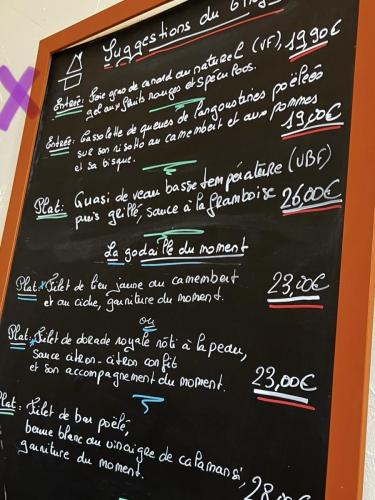 Suggestions du
Entrée: Foie gras de canard au naturel (VF) 19,90€
gel aux fruits rouges et Spéculoos.
Entrée: Cassolette de queues de langoustines poêlées
sur son risotto au camembert et aux pommes
et sa bisque. 19,00€
Plat: Quasi de veau basse température (VBF)
puis grillé, sauce à la framboise 26,00€
La godaille du moment
Plat: Filet de lieu jaune au camembert
et au cidre, garniture du moment. 23,00€
ou
Plat: Filet de dorade royale rôti à la peau,
sauce citron-citron confit
et son accompagnement du moment. 23,00€
Plat: Filet de bar poêlé,
beurre blanc au vinaigre de calamansi,
garniture du moment.